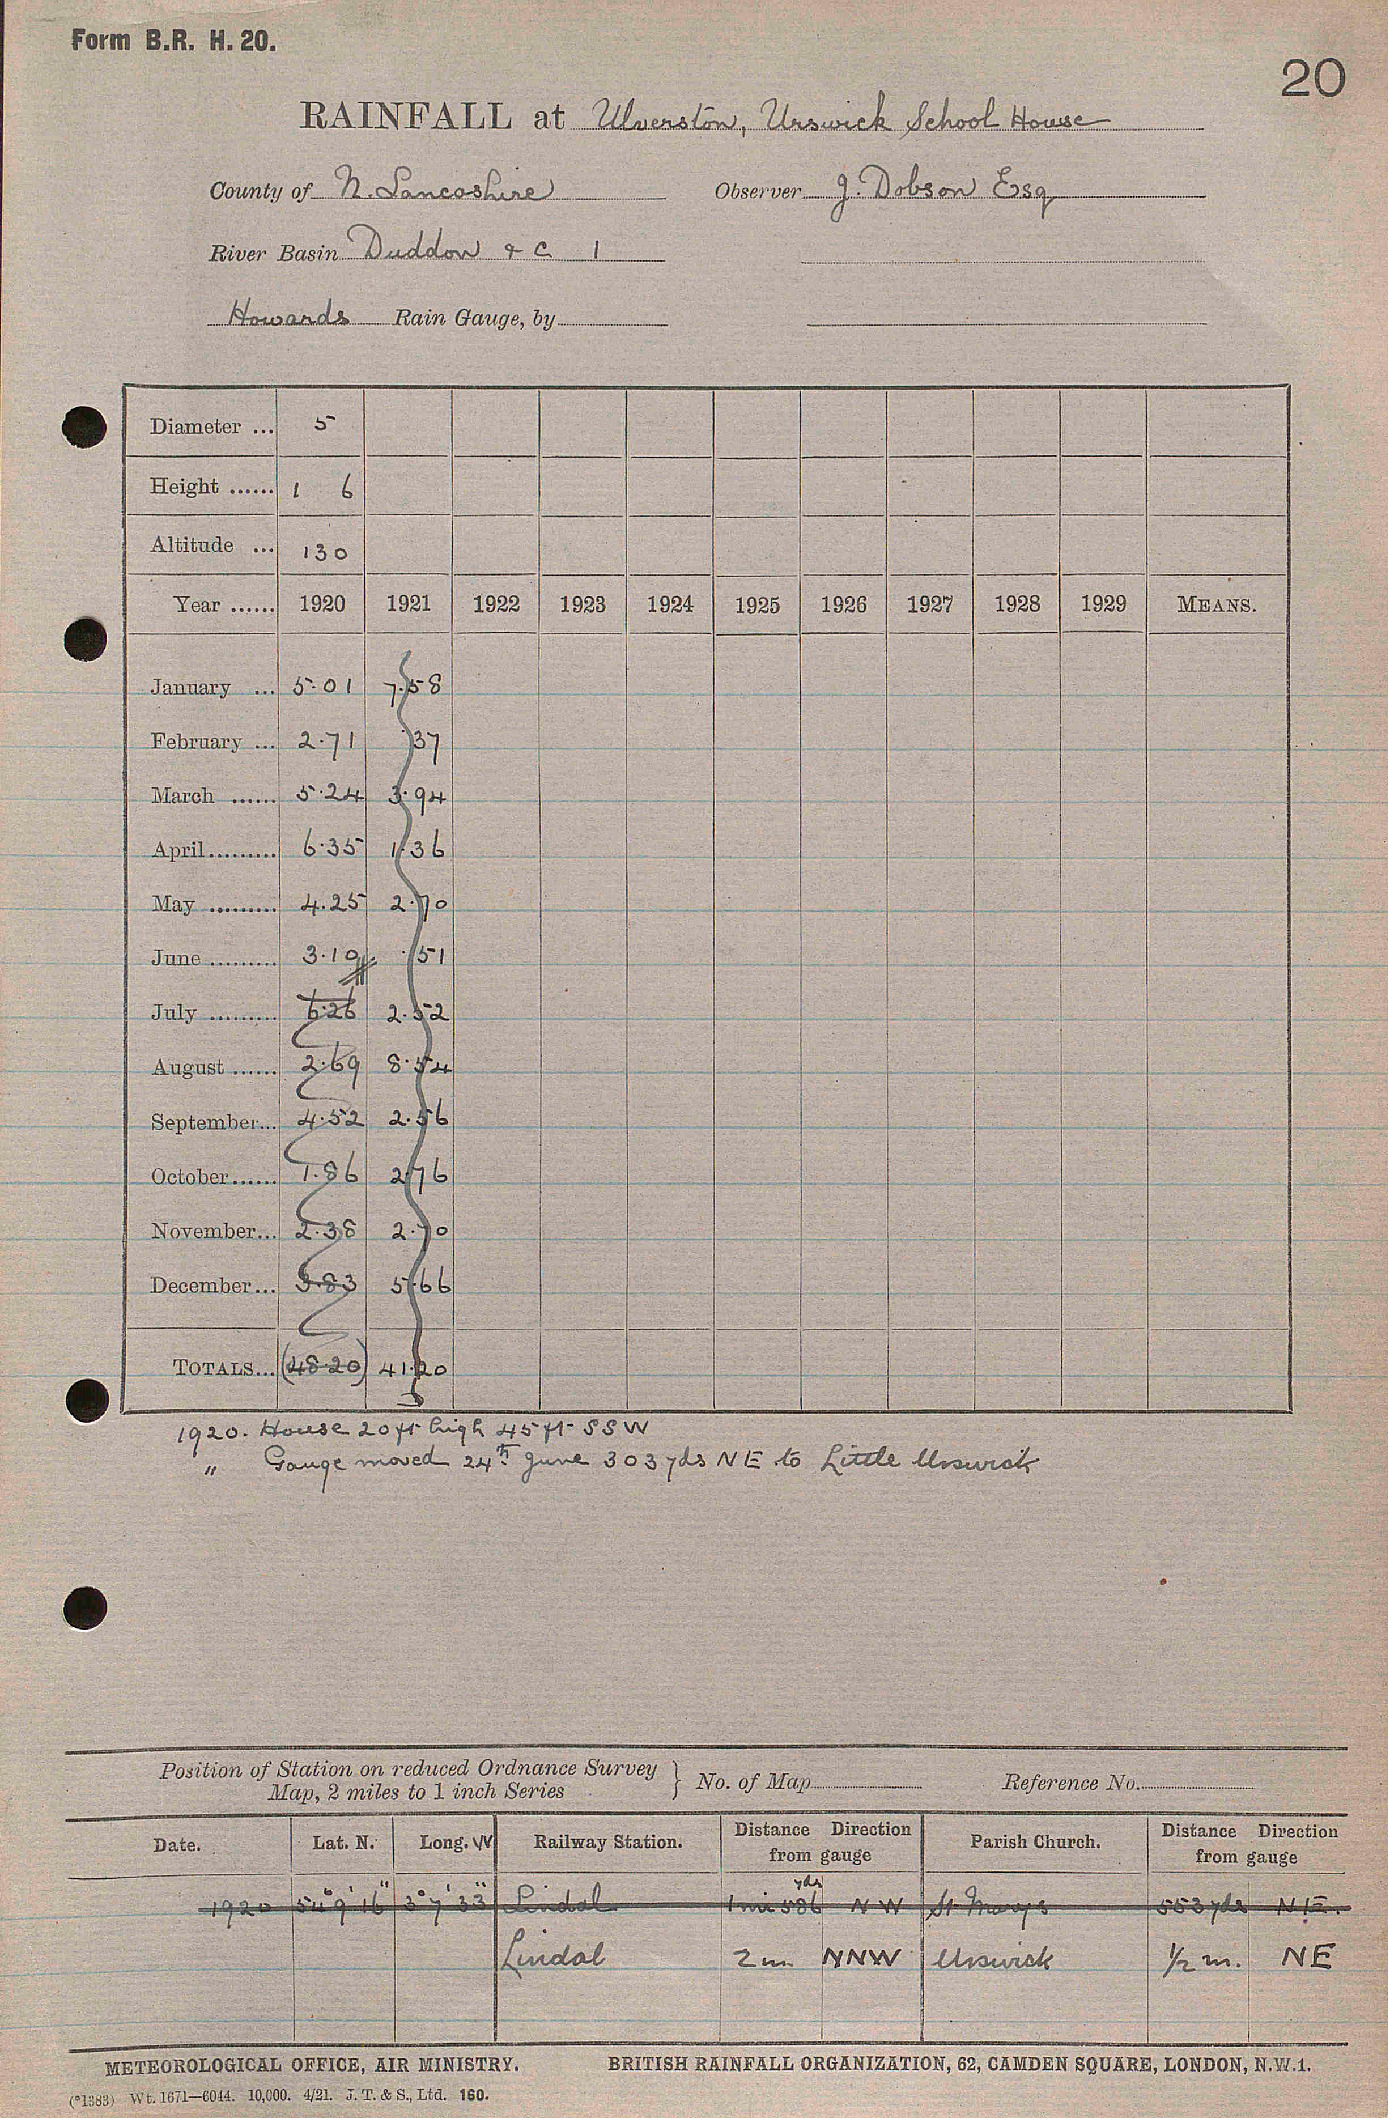 Form B.R. H. 20.
20
RAINFALL at Ulverston, Urswick School House
County of N. Lancashire Observer J. Dobson Esq
River Basin Duddon & C 1
Howards Rain Gauge, by
Diameter ... 5
Height ...... 1 6
Altitude ... 130
Year ...... 1920 1921 1922 1923 1924 1925 1926 1927 1928 1929 MEANS.
January ... 5.01 7.58
February ... 2.71 .37
March ...... 5.24 3.94
April ......... 6.35 1.36
May ......... 4.25 2.70
June ......... 3.10 .51
July ......... 6.26 2.52
August ...... 2.69 8.54
September... 4.52 2.56
October...... 1.86 2.76
November... 2.38 2.70
December... 3.83 5.66
TOTALS... (48.20) 41.20
1920. House 20ft high 45ft SSW
" Gauge moved 24th June 303 yds NE to Little Urswick
Position of Station on reduced Ordnance Survey
Map, 2 miles to 1 inch Series } No. of Map Reference No.
Date. Lat. N. Long. W Railway Station. Distance Direction from gauge Parish Church. Distance Direction from gauge
1920 54° 9' 16" 3° 7' 33" Lindal 1 mi 586 yds NW St Marys 553 yds NE.
Lindal 2 m. NNW Urswick 1/2 m. NE
METEOROLOGICAL OFFICE, AIR MINISTRY. BRITISH RAINFALL ORGANIZATION, 62, CAMDEN SQUARE, LONDON, N.W.1.
(*1383) Wt. 1671—6044. 10,000. 4/21. J. T. & S., Ltd. 160.